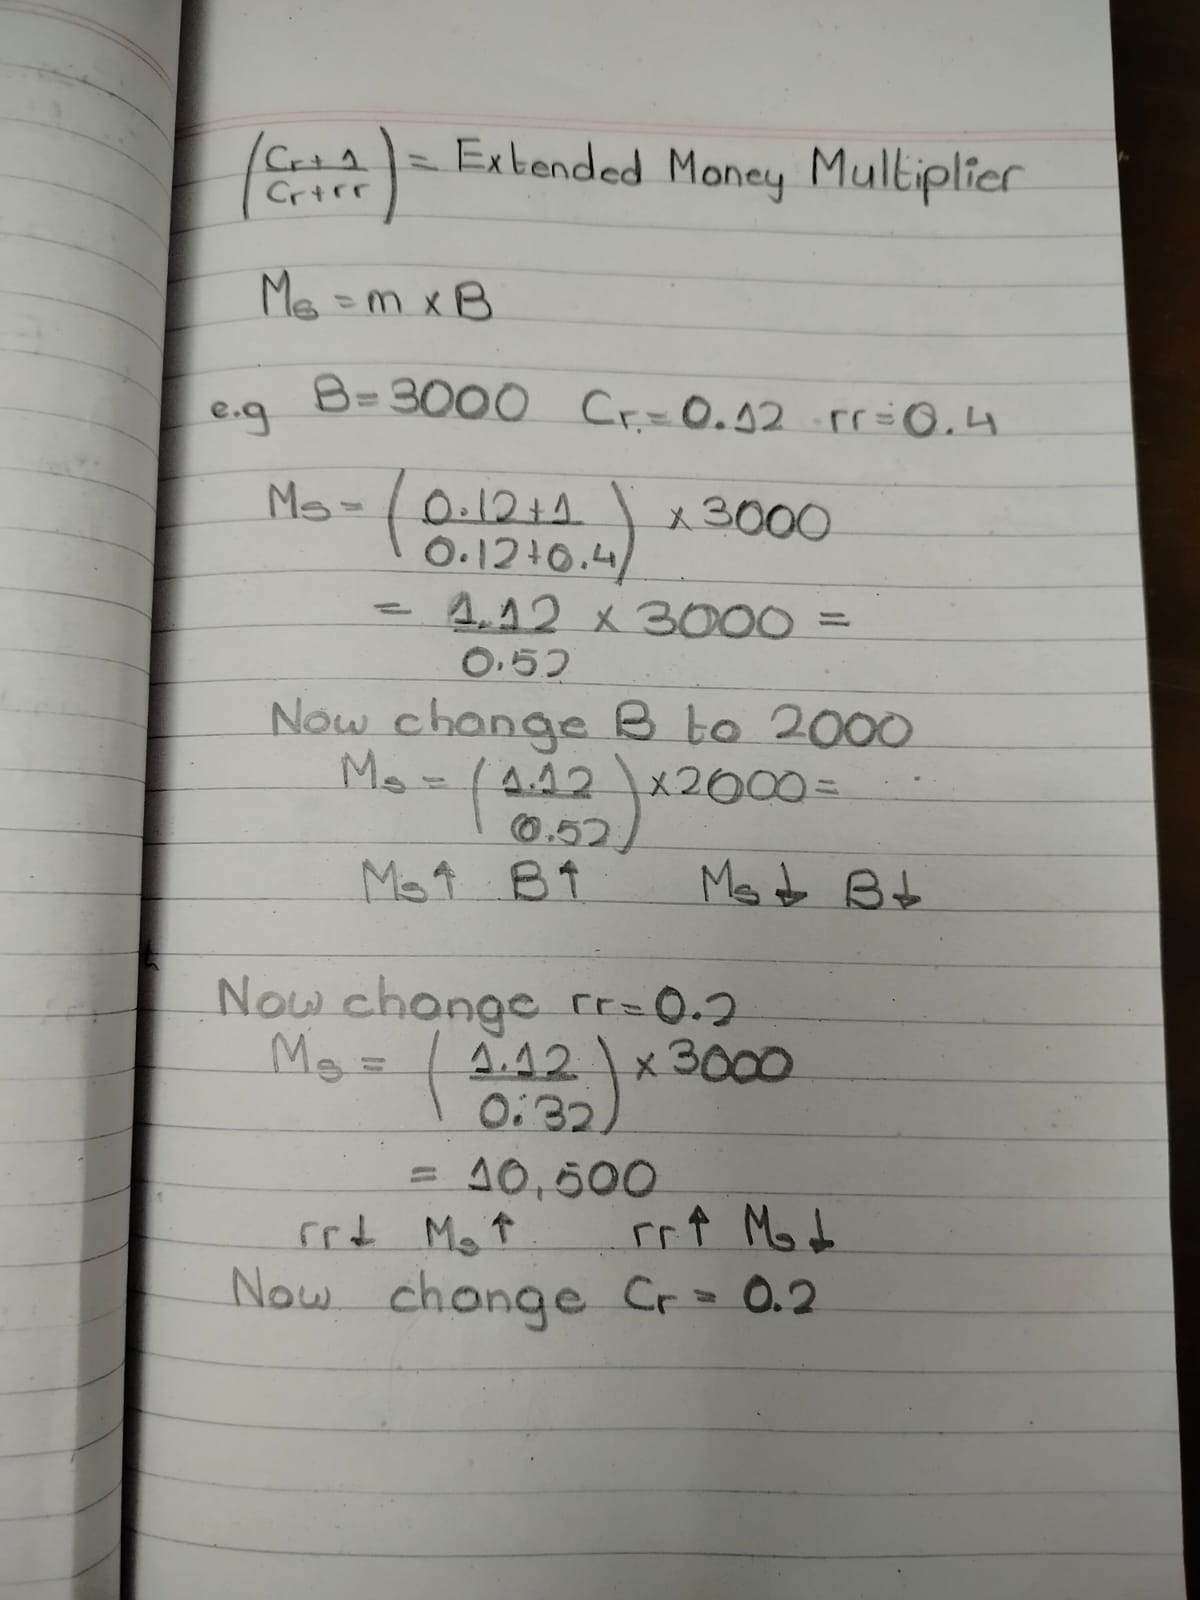 (Cr+1 / Cr+rr) = Extended Money Multiplier
Ms = m x B
e.g B=3000 Cr=0.12 rr=0.4
Ms = (0.12+1 / 0.12+0.4) x 3000
= 1.12 / 0.52 x 3000 =
Now change B to 2000
Ms = (1.12 / 0.52) x 2000 =
Ms↑ B↑ Ms↓ B↓
Now change rr=0.2
Ms = (1.12 / 0.32) x 3000
= 10,500
rr↓ Ms↑ rr↑ Ms↓
Now change Cr = 0.2